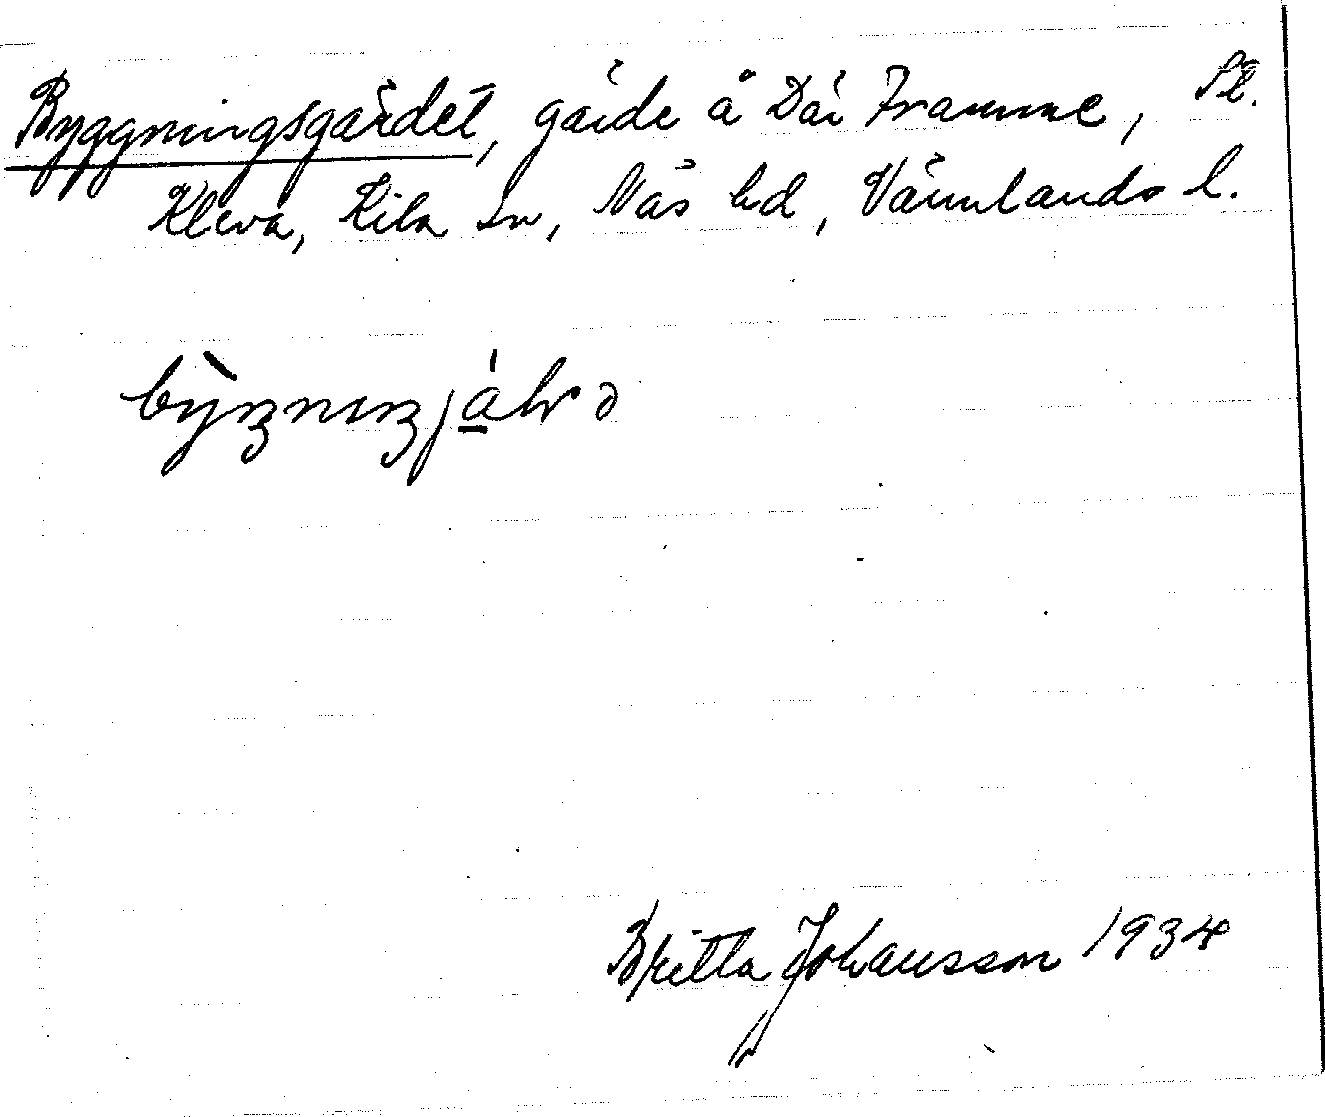 Byggningsgärdet, gärde å Där Framme, St.
Kleva, Kila sn, Näs hd, Värmlands l.
Britta Johansson 1934